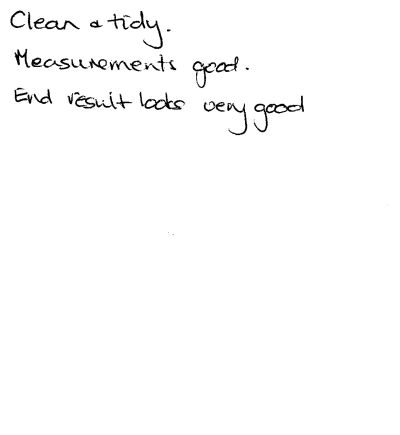 Clean & tidy.
Measurements good.
End result looks very good